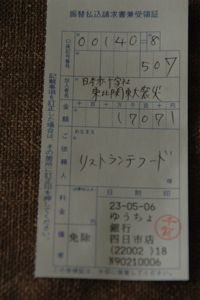 振替払込請求書兼受領証
口座記号番号
00140=8
507
加入者名
日本赤十字社
東北関東大震災
金額
17071
ご依頼人
おなまえ
リストランテフード
様
料金
免除
備考
日附印
23-05-06
ゆうちょ
銀行
四日市店
(22002)18
N90210006
記載事項を訂正した場合は、その箇所に訂正印を押してください。